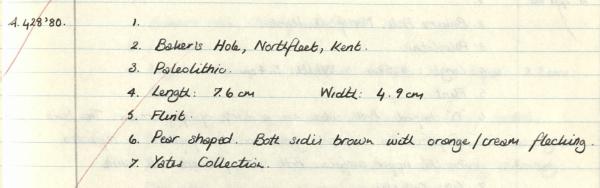 A.428'80. 1.
2. Baker's Hole, Northfleet, Kent.
3. Paleolithic.
4. Length: 7.6 cm Width: 4.9 cm
5. Flint.
6. Pear shaped. Both sides brown with orange/cream flecking.
7. Yates Collection.